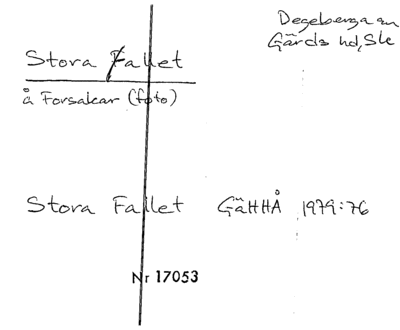 Degeberga sn
Gärds hd, Sk
Stora Fallet
å Forsakar (foto)
Stora Fallet GäHHÅ 1979:76
Nr 17053